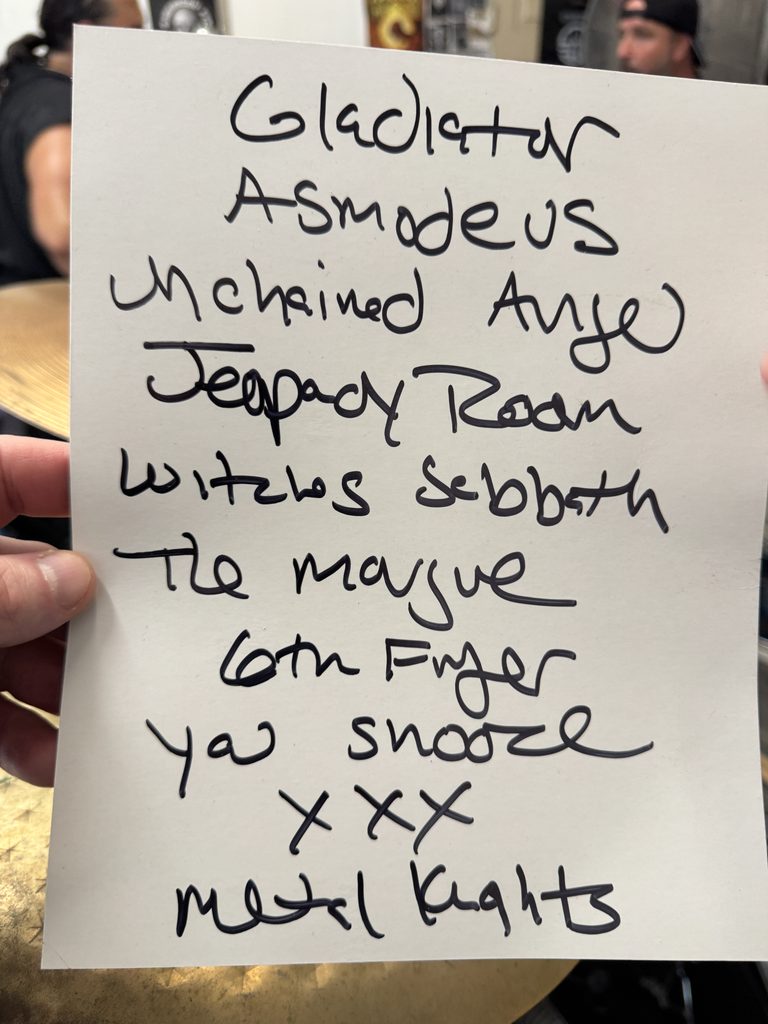 Gladiator
Asmodeus
Unchained Angel
Jeapady Room
Witches Sabbath
The Morgue
6th Finger
you snooze
XXX
Metal Knights